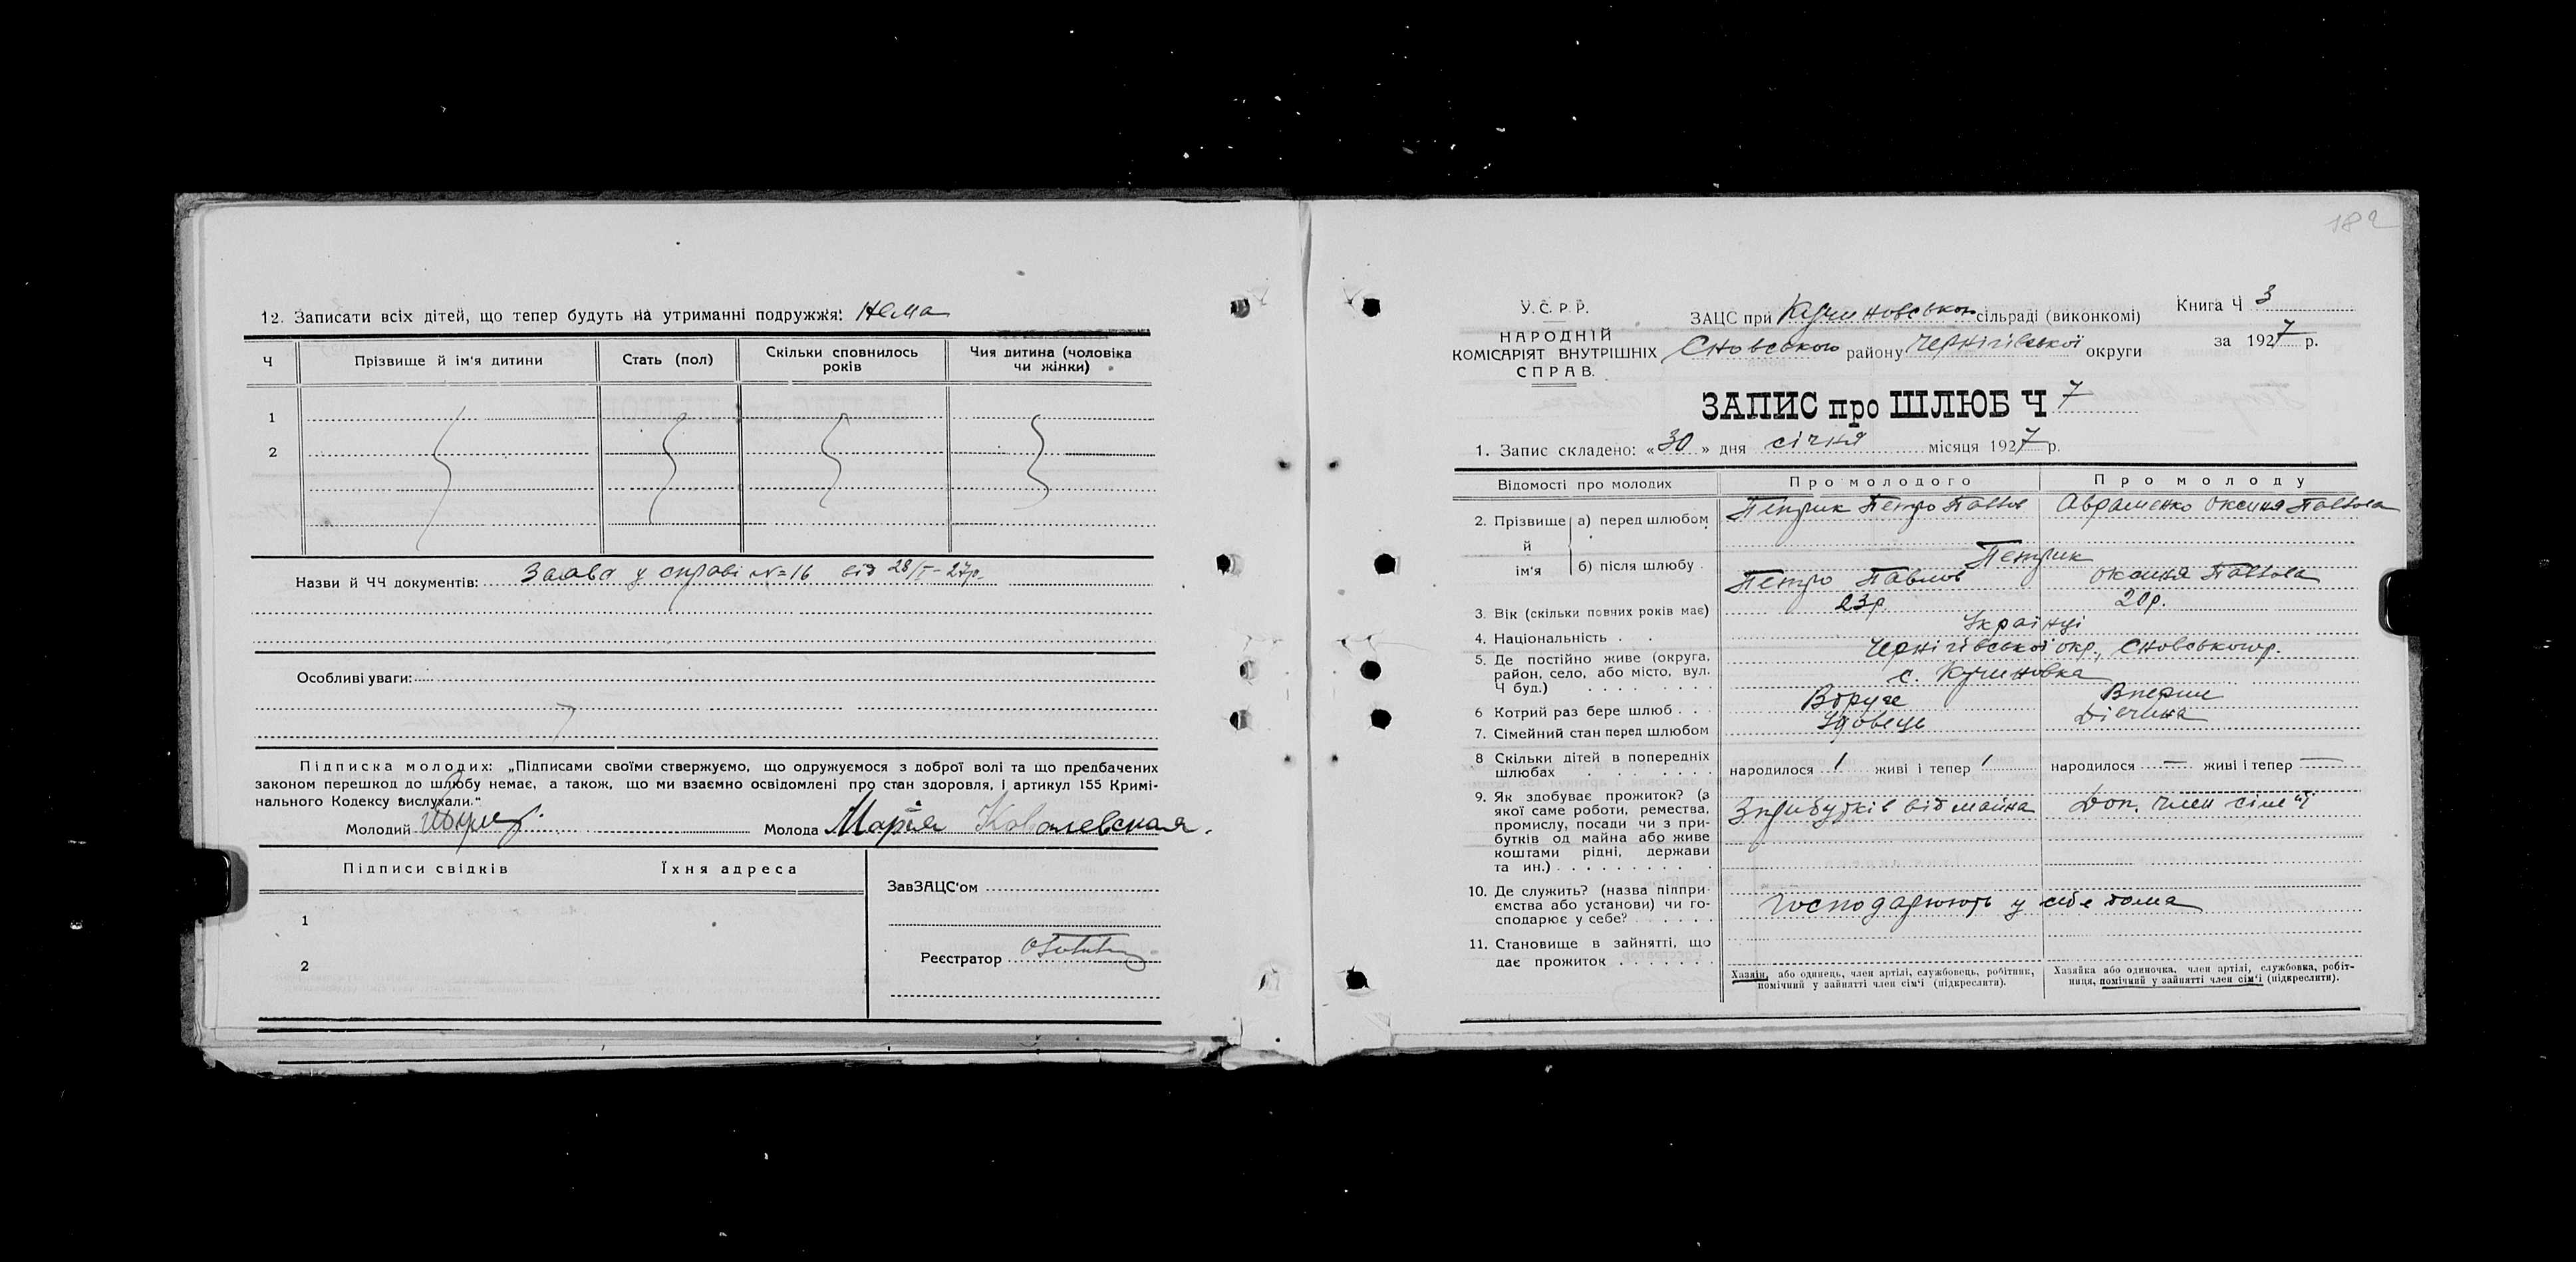 12. Записати всіх дітей, що тепер будуть на утриманні подружжя: Нема
Ч
Прізвище й ім'я дитини
Стать (пол)
Скільки сповнилось
років
Чия дитина (чоловіка
чи жінки)
1
2
Назви й ЧЧ документів: Заява у справі №=16 від 28/I-27р.
Особливі уваги:
Підписка молодих: „Підписами своїми стверждуємо, що одружуємося з доброї волі та що предбачених
законом перешкод до шлюбу немає, а також, що ми взаємно освідомлені про стан здоровля, і артикул 155 Кримі-
нального Кодексу вислухали.“
Молодий
Молода Мария Ковалевская.
Підписи свідків
Їхня адреса
1
2
ЗавЗАЦС'ом
Реєстратор
182
У.С.Р.Р.
НАРОДНІЙ
КОМІСАРІЯТ ВНУТРІШНІХ
СПРАВ.
ЗАЦС при Кучиновськом сільраді (виконкомі)
Сновського району Чернігівської округи
Книга Ч 3
за 1927 р.
ЗАПИС про ШЛЮБ Ч 7
1. Запис складено: «30» дня січня місяця 1927 р.
Відомості про молодих
Про молодого
Про молоду
2. Прізвище й ім'я
а) перед шлюбом
Петрик Петро Павлов
Авраменко Оксиня Павлова
б) після шлюбу
Петрик
Петро Павлов
Оксиня Павлова
3. Вік (скільки повних років має)
23р.
20р.
4. Національність
Українці
5. Де постійно живе (округа,
район, село, або місто, вул.
Ч буд.)
Чернігівської окр., Сновського р.
с. Кучиновка
6 Котрий раз бере шлюб
Вдруге
Вперше
7. Сімейний стан перед шлюбом
Удовець
Дівчина
8 Скільки дітей в попередніх
шлюбах
народилося 1 живі і тепер 1
народилося — живі і тепер —
9. Як здобуває прожиток? (з
якої саме роботи, ремества,
промислу, посади чи з при-
бутків од майна або живе
коштами рідні, держави
та ин.)
З прибутків від майна
Доп. член сім'ї
10. Де служить? (назва підпри-
ємства або установи) чи го-
сподарює у себе?
Господарюють у себе дома
11. Становище в зайнятті, що
дає прожиток
Хазяїн, або одинець, член артілі, службовець, робітник,
помічний у зайнятті член сім'ї (підкреслити).
Хазяйка або одиночка, член артілі, службовка, робіт-
ниця, помічний у зайнятті член сім'ї (підкреслити).